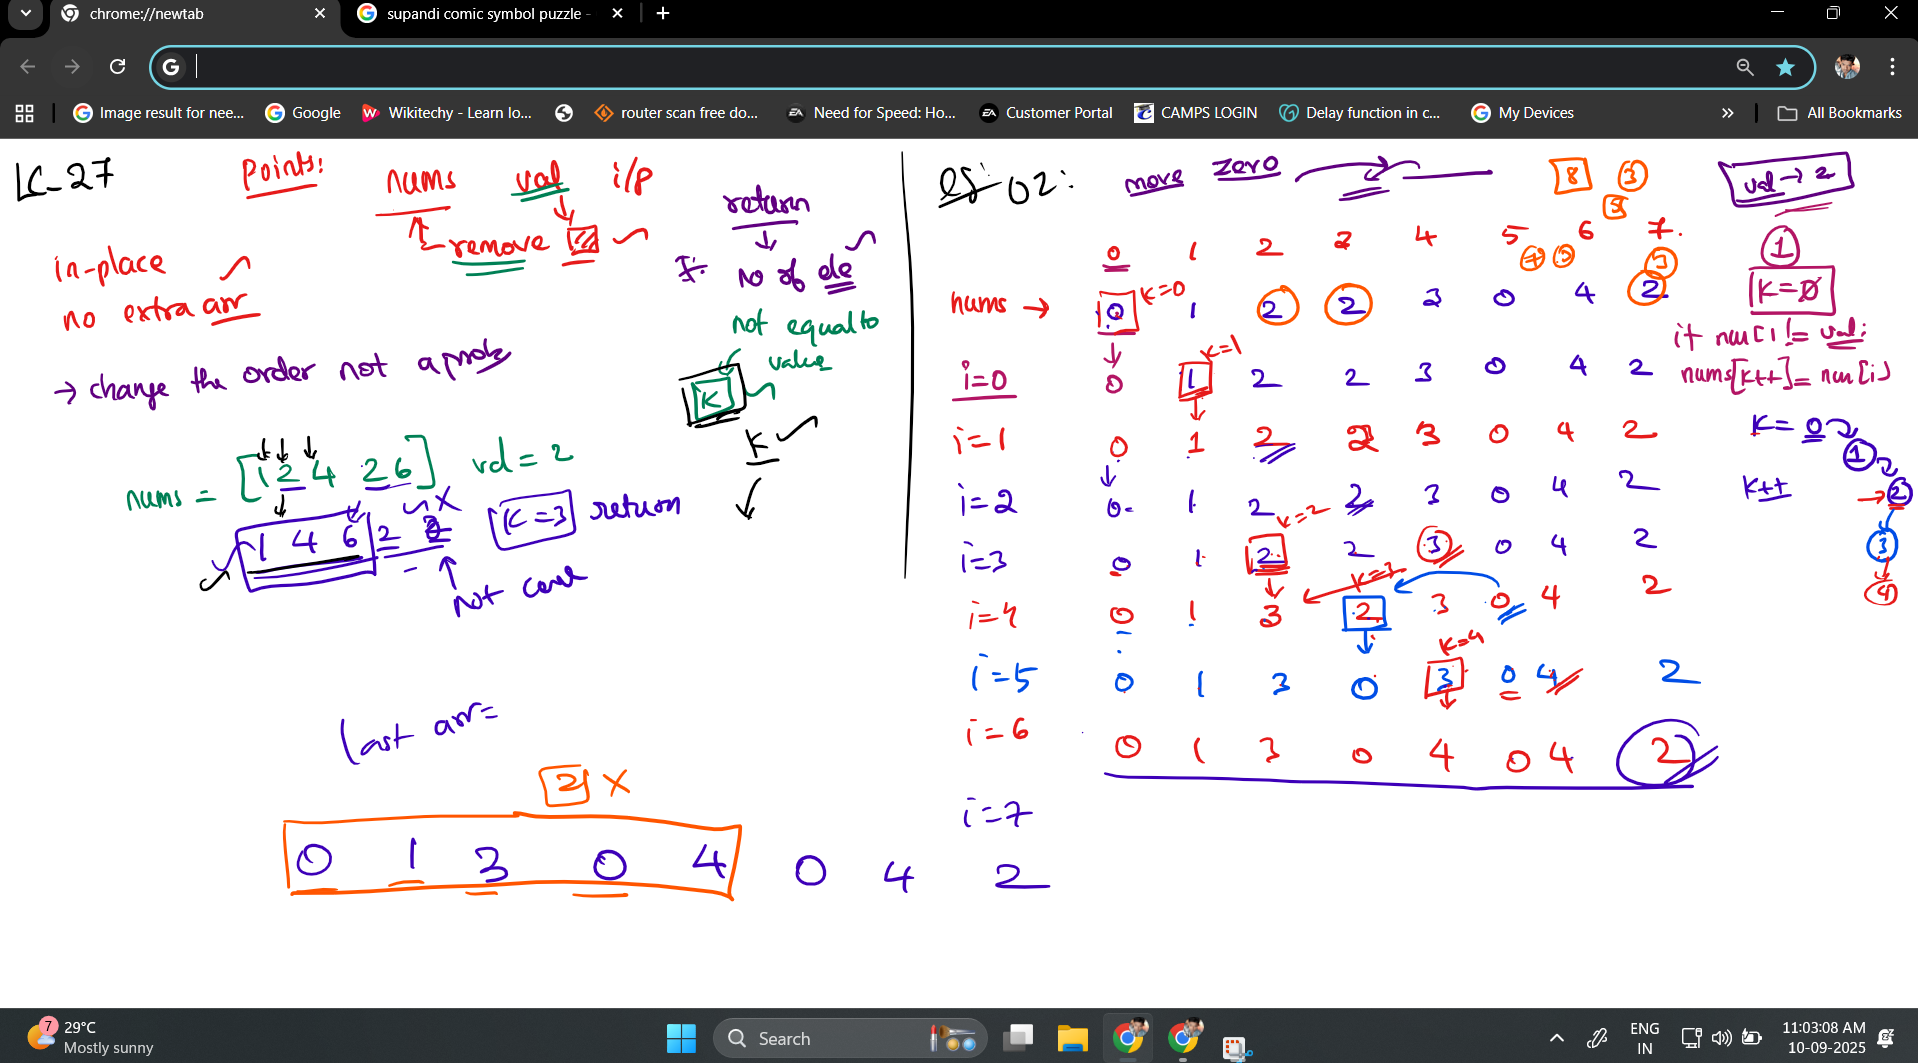 chrome://newtab
supandi comic symbol puzzle -
Image result for nee...
Google
Wikitechy - Learn lo...
router scan free do...
Need for Speed: Ho...
Customer Portal
CAMPS LOGIN
Delay function in c...
My Devices
All Bookmarks
LC-27
Points:
nums val i/p
remove
in-place
no extra arr
→ change the order not a prob
return
no of ele
not equal to
value
K
K
nums = [1 2 4 2 6] val = 2
1 4 6 2 2 X
K=3 return
not care
last arr=
2 X
0 1 3 0 4 0 4 2
eg: 02:
move zero
8 3
5
val → 2
0 1 2 3 4 5 6 7
1
nums → 0 K=0 1 2 2 3 0 4 2
K=0
if num[i] != val:
nums[K++] = num[i]
K=1
i=0 0 1 2 2 3 0 4 2
i=1 0 1 2 2 3 0 4 2
K= 0 1 2 3 4
K++
i=2 0 1 2 2 3 0 4 2
K=2
i=3 0 1 2 2 3 0 4 2
K=3
i=4 0 1 3 2 3 0 4 2
K=4
i=5 0 1 3 0 3 0 4 2
i=6 0 1 3 0 4 0 4 2
i=7
7
29°C
Mostly sunny
Search
ENG
IN
11:03:08 AM
10-09-2025